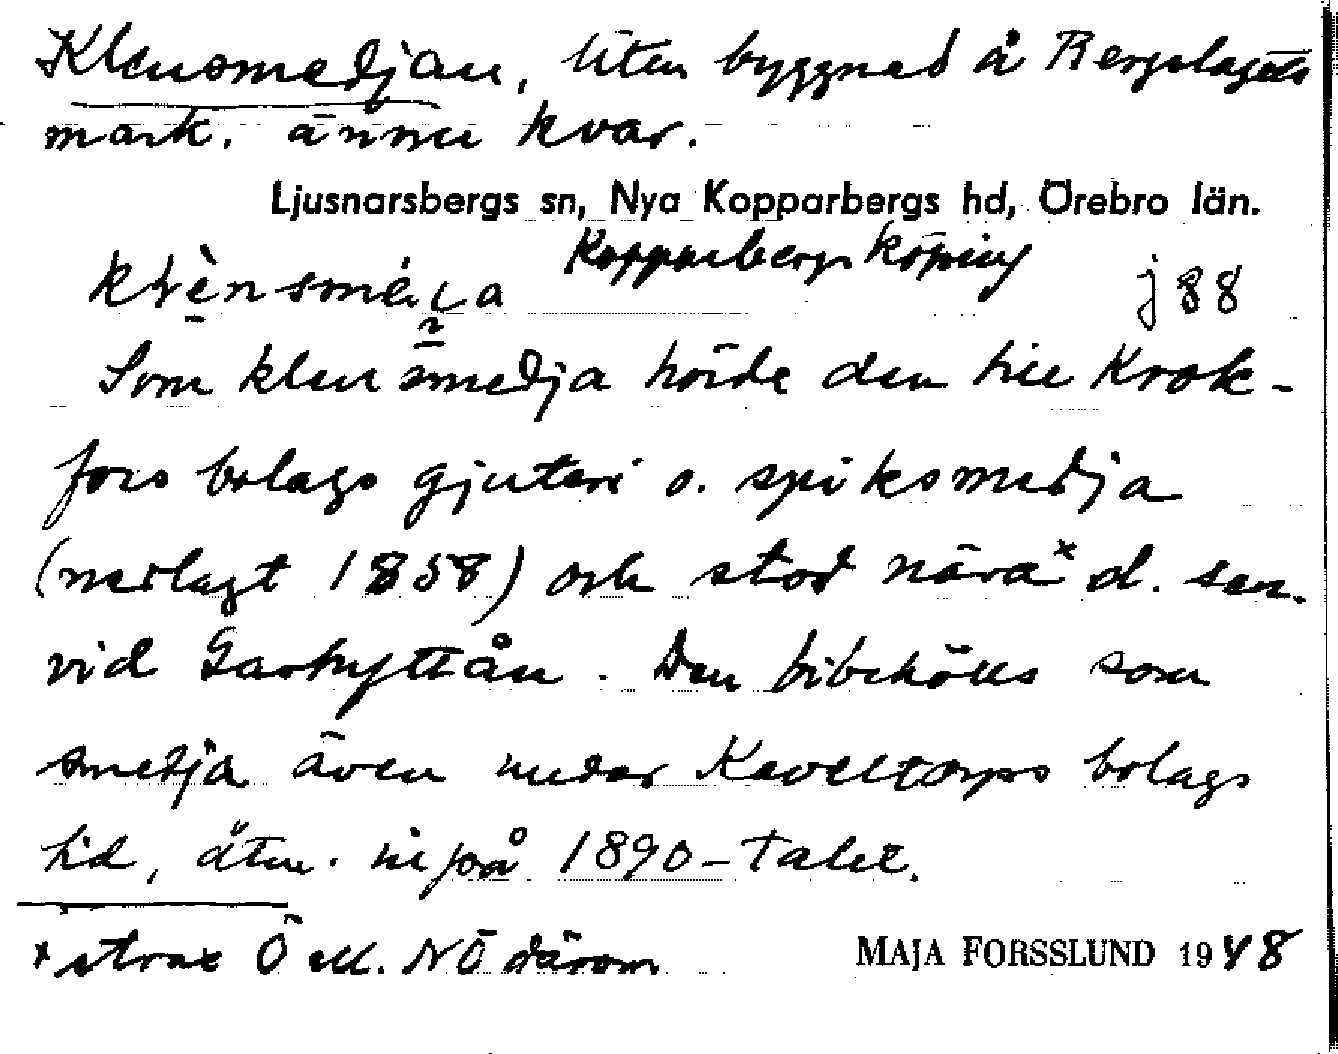 Klensmedjan, liten byggnad å Bergslagets
mark. ännu kvar.
Ljusnarsbergs sn, Nya Kopparbergs hd, Örebro län.
Kopparbergs köping
j 88
Som klensmedja hörde den till Krok-
fors bolags gjuteri o. spiksmedja
(nerlagt 1858) och stod nära x d. sen.
vid Garhyttån. Den bibehölls som
smedja även under Kaveltorps bolags
tid, åtm. in på 1890-talet.
x strax Ö ell. NÖ därom
MAJA FORSSLUND 1948